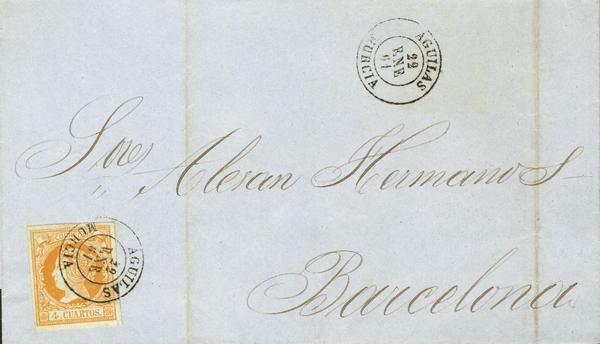 AGUILAS
22
ENE
61
MURCIA
Sres Alesan Hermanos
Barcelona
AGUILAS
22
ENE
61
MURCIA
4 CUARTOS.